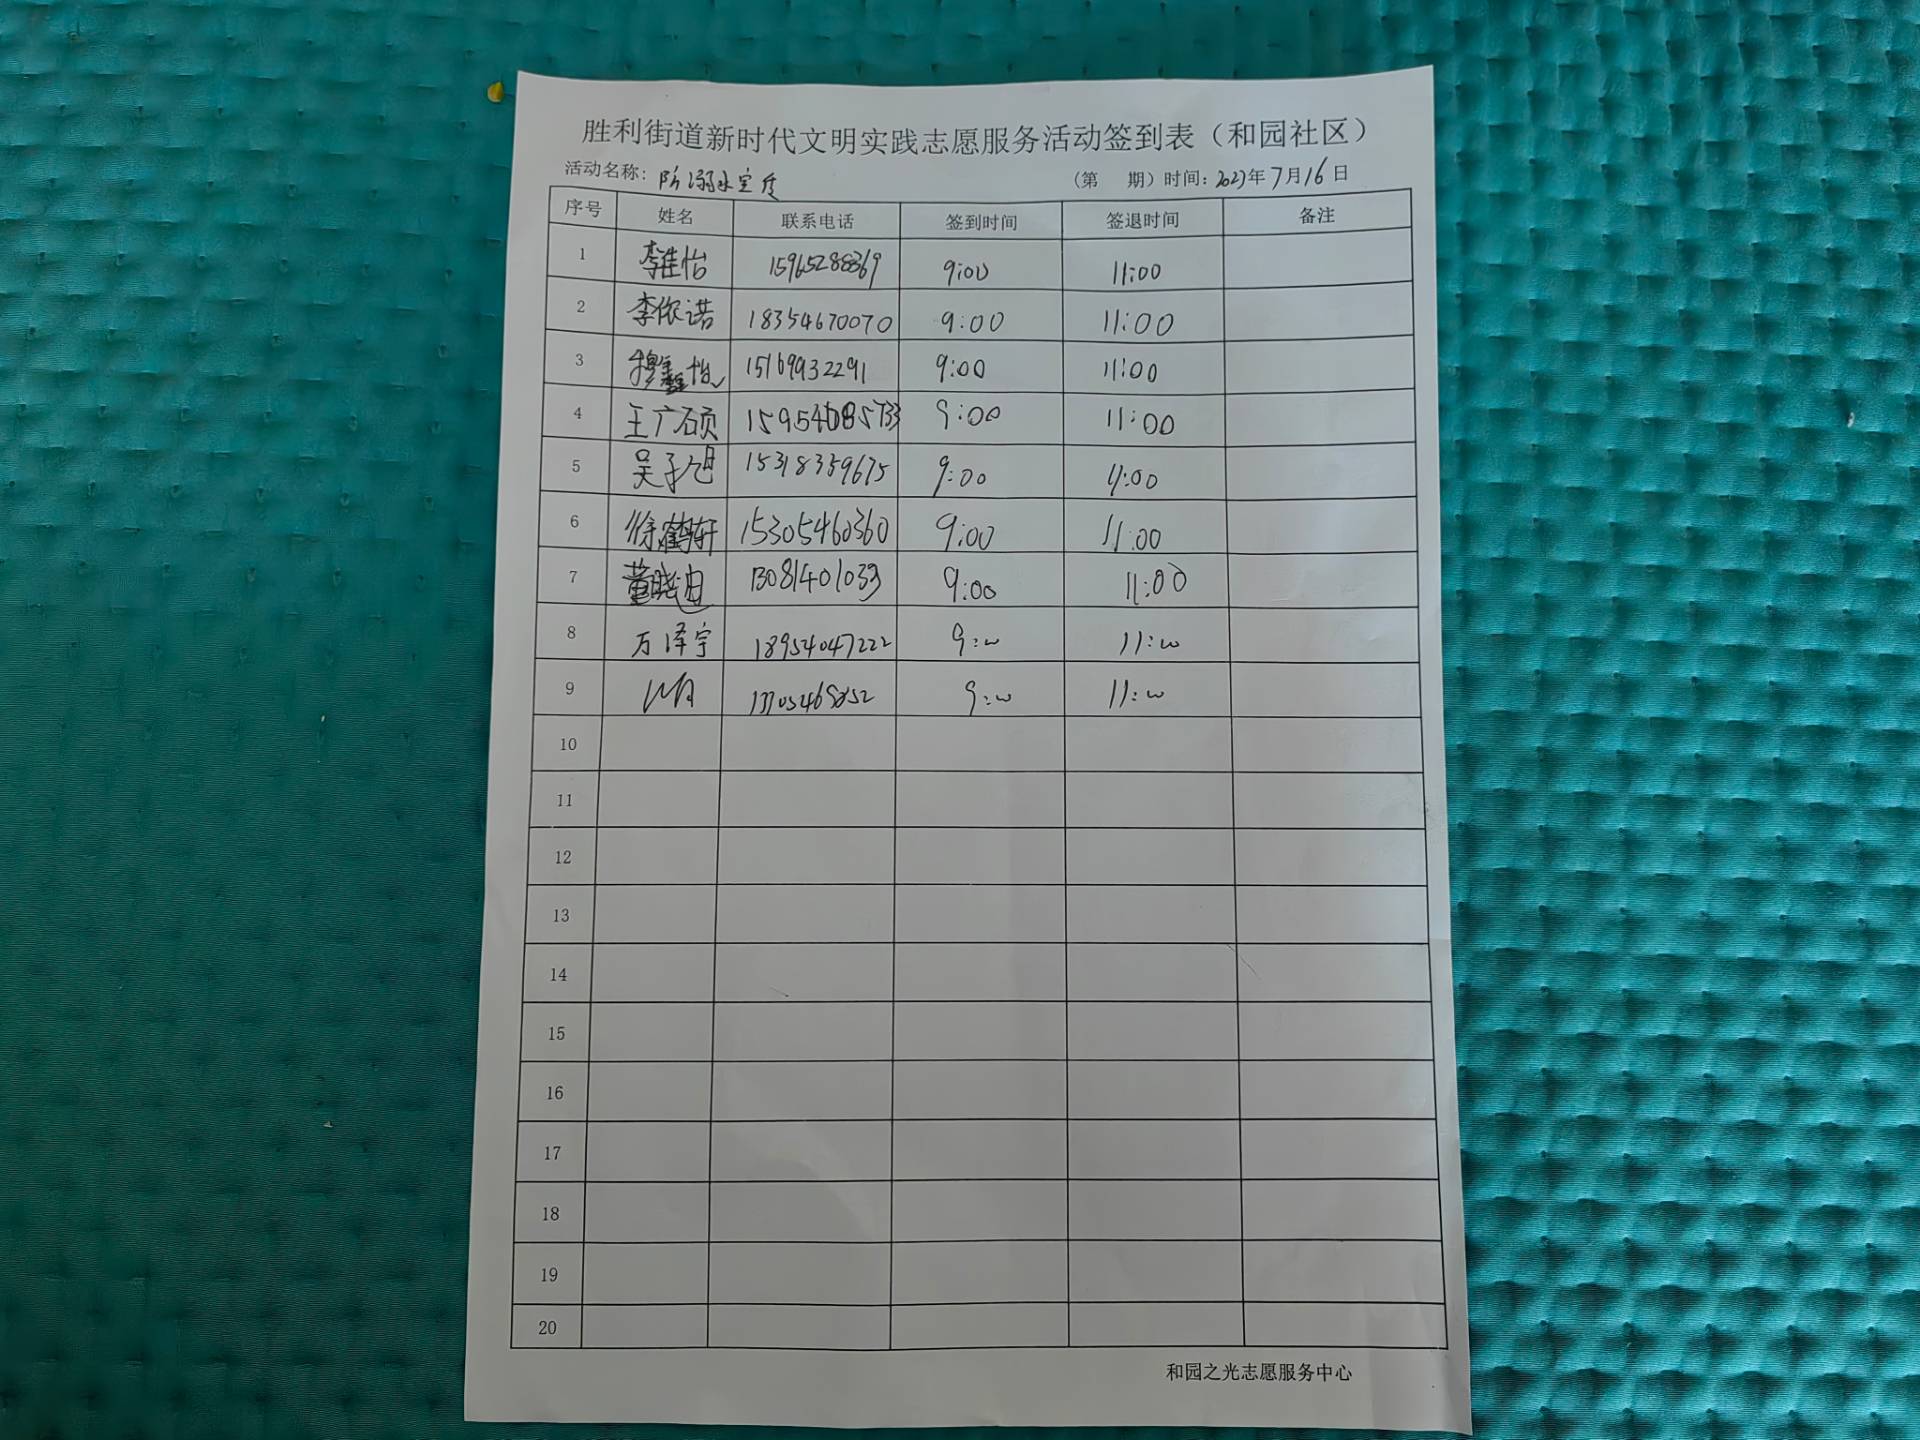 胜利街道新时代文明实践志愿服务活动签到表（和园社区）
活动名称：防溺水宣传 （第 期）时间：2023年7月16日
序号 姓名 联系电话 签到时间 签退时间 备注
1 李佳怡 15965288369 9:00 11:00
2 李依诺 18354670070 9:00 11:00
3 穆鑫怡 15169932291 9:00 11:00
4 王广硕 15954085733 9:00 11:00
5 吴子旭 15318359675 9:00 11:00
6 徐鹤轩 15305460360 9:00 11:00
7 董晓迪 13081401033 9:00 11:00
8 万泽宇 18954047222 9:00 11:00
9 9:00 11:00
10
11
12
13
14
15
16
17
18
19
20
和园之光志愿服务中心